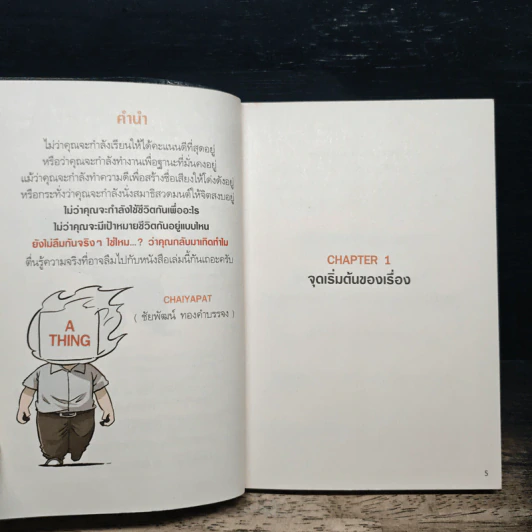 คำนำ
ไม่ว่าคุณจะกำลังเรียนให้ได้คะแนนดีที่สุดอยู่
หรือว่าคุณจะกำลังทำงานเพื่อฐานะที่มั่นคงอยู่
แม้ว่าคุณจะกำลังทำความดีเพื่อสร้างชื่อเสียงให้โด่งดังอยู่
หรือกระทั่งว่าคุณจะกำลังนั่งสมาธิสวดมนต์ให้จิตสงบอยู่
ไม่ว่าคุณจะกำลังใช้ชีวิตกันเพื่ออะไร
ไม่ว่าคุณจะมีเป้าหมายชีวิตกันอยู่แบบไหน
ยังไม่ลืมกันจริงๆ ใช่ไหม...? ว่าคุณกลับมาเกิดทำไม
ตื่นรู้ความจริงที่อาจลืมไปกับหนังสือเล่มนี้กันเถอะครับ
CHAIYAPAT
( ชัยพัฒน์ ทองคำบรรจง )
A
THING
CHAPTER 1
จุดเริ่มต้นของเรื่อง
5